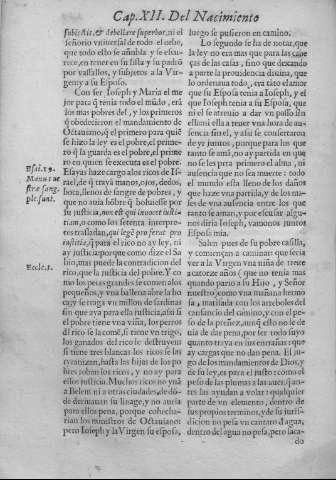 Cap. XII. Del Nacimiento
subiectis, & debellare superbos, ni el
señorio vniuersal de todo el orbe,
que todo esto se assiñala y se escu-
rece, en tener en su lista y su padrō
por vassallos, y subjetos a la Vir-
gen y a su Esposo.
Con ser Ioseph y Maria el me
jor par q̄ tenia todo el mūdo, erā
los mas pobres del, y los primeros
q̄ obedecieron el mandamiento de
Octauiano, q̄ el primero para quiē
se hizo la ley es el pobre, el prime
ro q̄ la guarda es el pobre, el prime
ro en quien se executa es el pobre.
Esayas haze cargo a los ricos de Is-
rael, de q̄ trayā manos, ojos, dedos,
boca, llenos de sangre de pobres, y
que no auia hōbre q̄ boluiesse por
su justicia, non est qui inuocet iusti-
tiam, o como los setenta interpre-
tes trasladan, qui legē pro ferat pro
iustitia, q̄ para el rico no ay ley, ni
ay justicia porque como dize el Sa
bio, mas puede la contradicion del
rico, que la justicia del pobre. Y co
mo los peçes grandes se comen los
pequeños, y vna ballena abre la bo
ca y se traga vn millon de sardinas
sin que aya para ella justicia, assi si
el pobre tiene vna viña, los perros
dl rico se la comē, si tiene vn trigo,
los ganados del rico le destruyen
si tiene tres blancas los ricos se las
cvranizan, hasta los hijos de los po
bres roban los ricos, y no ay para
ellos justicia. Muchos ricos no ynā
a Belem ni a otras ciudades, de dō-
de dermanan su linage, y no auria
para ellos pena, porque cohecha-
rian los ministros de Octauiano:
pero Ioseph y la Virgen su esposa,
Esai. 59.
Manus ve
stræ sangu
ple sunt.
Eccle. 1.
luego se pusieron en camino.
Lo segundo se ha de notar, que
la ley no era mas que para las cabe
ças de las casas, sino que dexando
a parte la prouidencia diuina, que
lo ordenaua todo, era tāto el amor
que su Esposa tenia a Ioseph, y el
que Ioseph tenia a su Esposa, que
ni el se atreuio a dar vn passo sin
ella, ni ella a tener vna hora de au-
sencia sin el, y assi se consertaron
de yr juntos, porque para los que
tanto se amā, no ay partida en que
no se les parta primero el alma, ni
ausencia que no sea muerte: todo
el mundo esta lleno de los daños
que haze vna partida, y de los ma-
les de vna ausencia entre los que
tanto se aman, y por escusar algu-
nos diria Ioseph, vamonos juntos
Esposa mia.
Salen pues de su pobre casilla,
y començan a caminar: que seria
ver a la Virgen vna niña de treze
a catorze años (que no tenia mas
quando pario a su Hijo, y Señor
nuestro) como vna mañana hermo
sa, matizada con los arreboles del
cansancio del camino, y con el pe-
so de la preñez, aunq̄ esto no le de
uia de dar pena, por ser todo suyo
quanto traya en sus entrañas: que
ay cargas que no dan pena. El ju-
go de los mandamientos de Dios, y
de su ley, es para el justo: como el
peso de las plumas a las aues, q̄ an-
tes las ayudan a volar: qualquier
parte de vn elemento, dentro de
sus propios terminos, y de su juris-
dicion no pesa vn cantaro d'agua,
dentro del agua no pesa, pero saca-
do